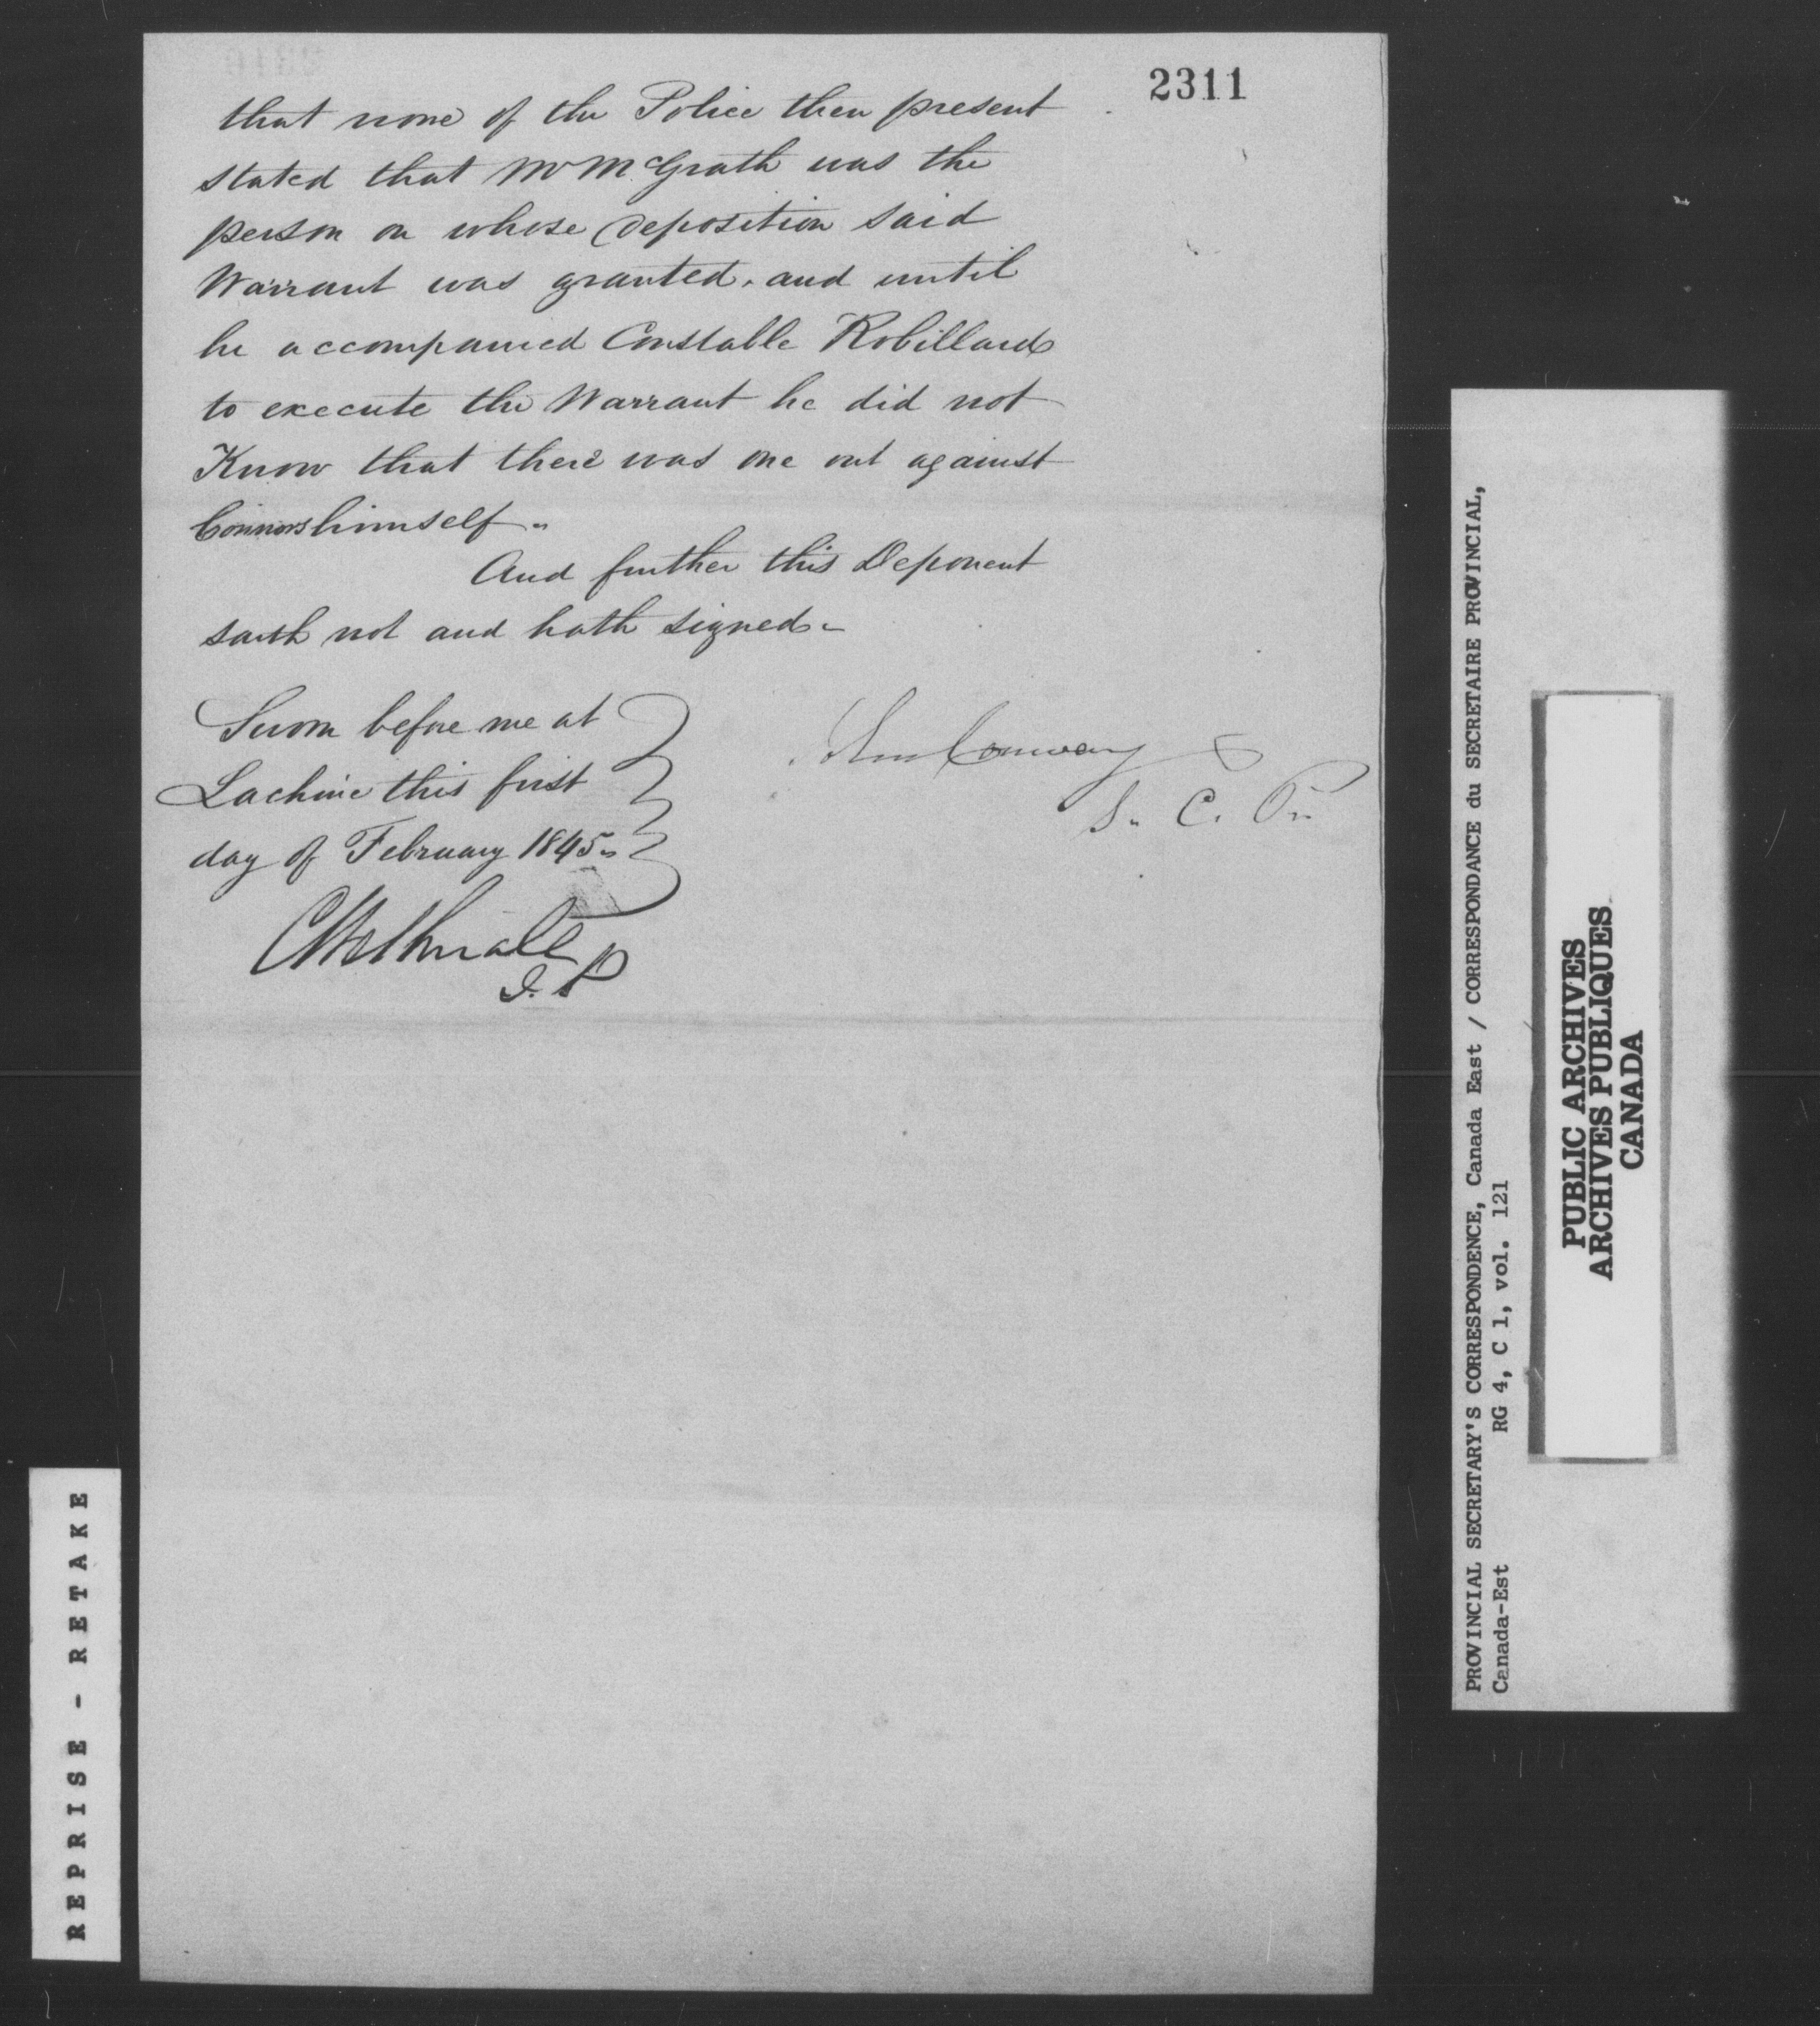 2311
that none of the Police then present
stated that Mr McGrath was the
person on whose Deposition said
Warrant was granted. and until
he accompanied Constable Robillard
to execute the Warrant he did not
Know that there was one out against
Connors himself.
And further this Deponent
saith not and hath signed.
Sworn before me at
Lachine this first
day of February 1845.
Conway
S. C. P.
J. P
PROVINCIAL SECRETARY'S CORRESPONDENCE, Canada East / CORRESPONDANCE du SECRETAIRE PROVINCIAL,
Canada-Est RG 4, C 1, vol. 121
PUBLIC ARCHIVES
ARCHIVES PUBLIQUES
CANADA
REPRISE - RETAKE